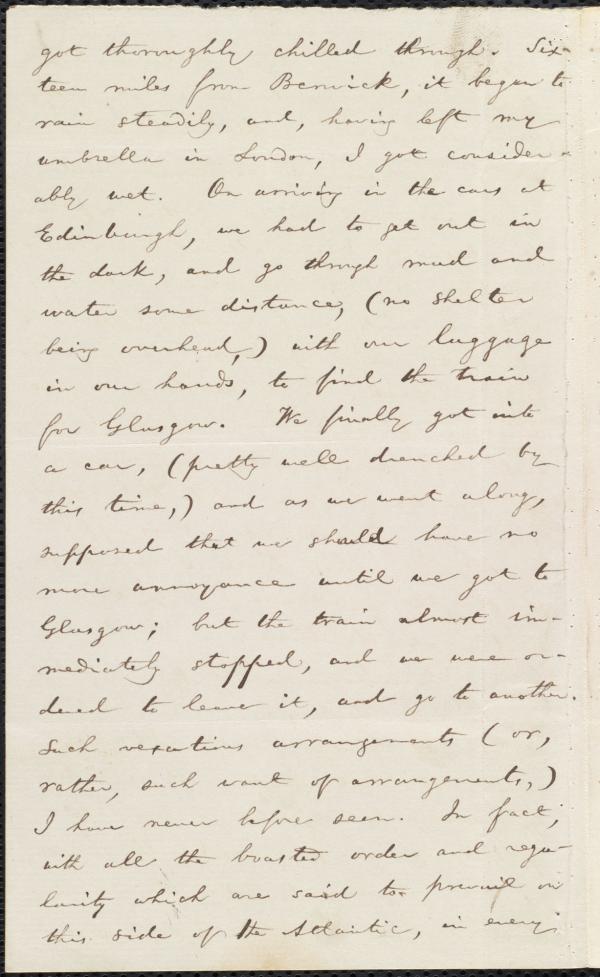 got thoroughly chilled through. Six-
teen miles from Berwick, it began to
rain steadily, and, having left my
umbrella in London, I got consider-
ably wet. On arriving in the cars at
Edinburgh, we had to get out in
the dark, and go through mud and
water some distance, (no shelter
being overhead,) with our luggage
in our hands, to find the train
for Glasgow. We finally got into
a car, (pretty well drenched by
this time,) and as we went along,
supposed that we should have no
more annoyance until we got to
Glasgow; but the train almost im-
mediately stopped, and we were or-
dered to leave it, and go to another.
Such vexatious arrangements (or,
rather, such want of arrangements,)
I have never before seen. In fact,
with all the boasted order and regu-
larity which are said to prevail on
this side of the Atlantic, in every